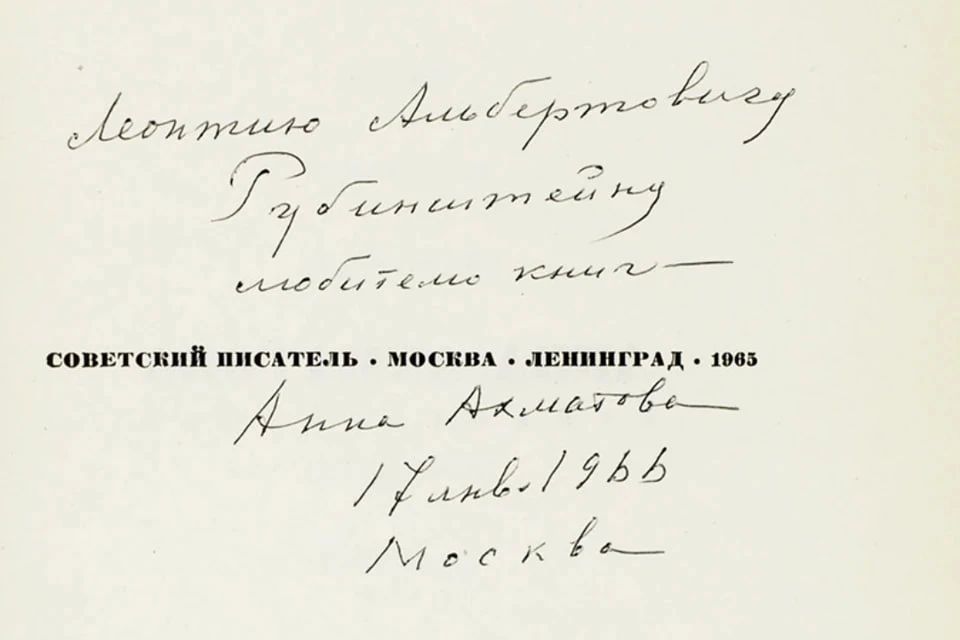 Леонтию Альбертовичу
Рубинштейну
любителю книг —
СОВЕТСКИЙ ПИСАТЕЛЬ • МОСКВА • ЛЕНИНГРАД • 1965
Анна Ахматова
17 янв. 1966
Москва